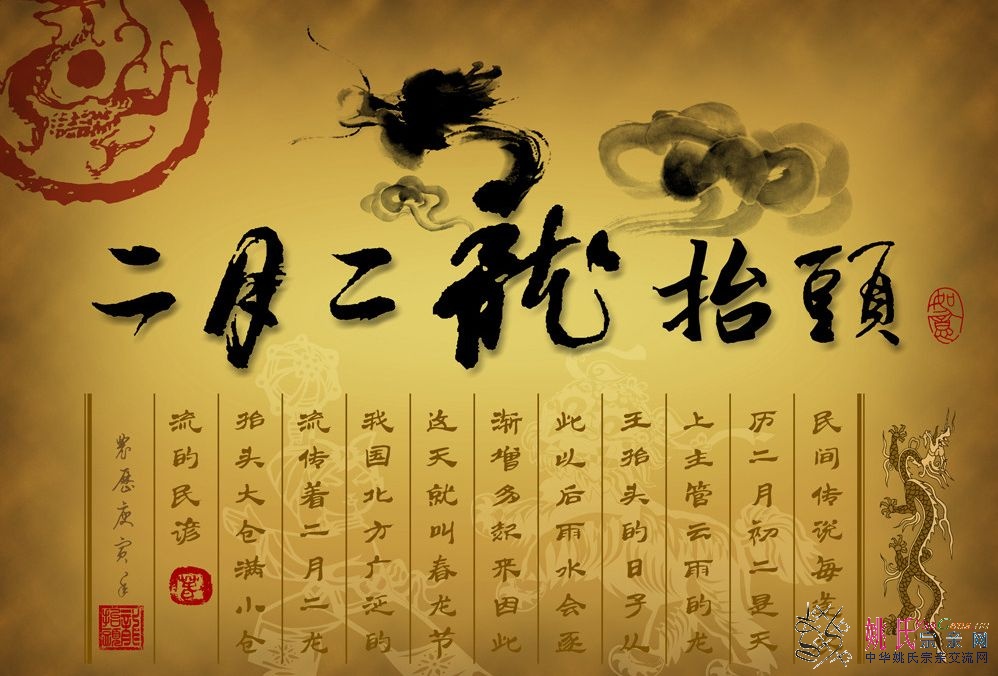 二月二龍抬頭
如意
民间传说每
历二月初二是天
上主管云雨的龙
王抬头的日子从
此以后雨水会逐
渐增多起来因此
这天就叫春龙节
我国北方广泛的
流传着二月二龙
抬头大仓满小仓
流的民谚
农历庚寅年
姚氏宗亲网
中华姚氏宗亲交流网